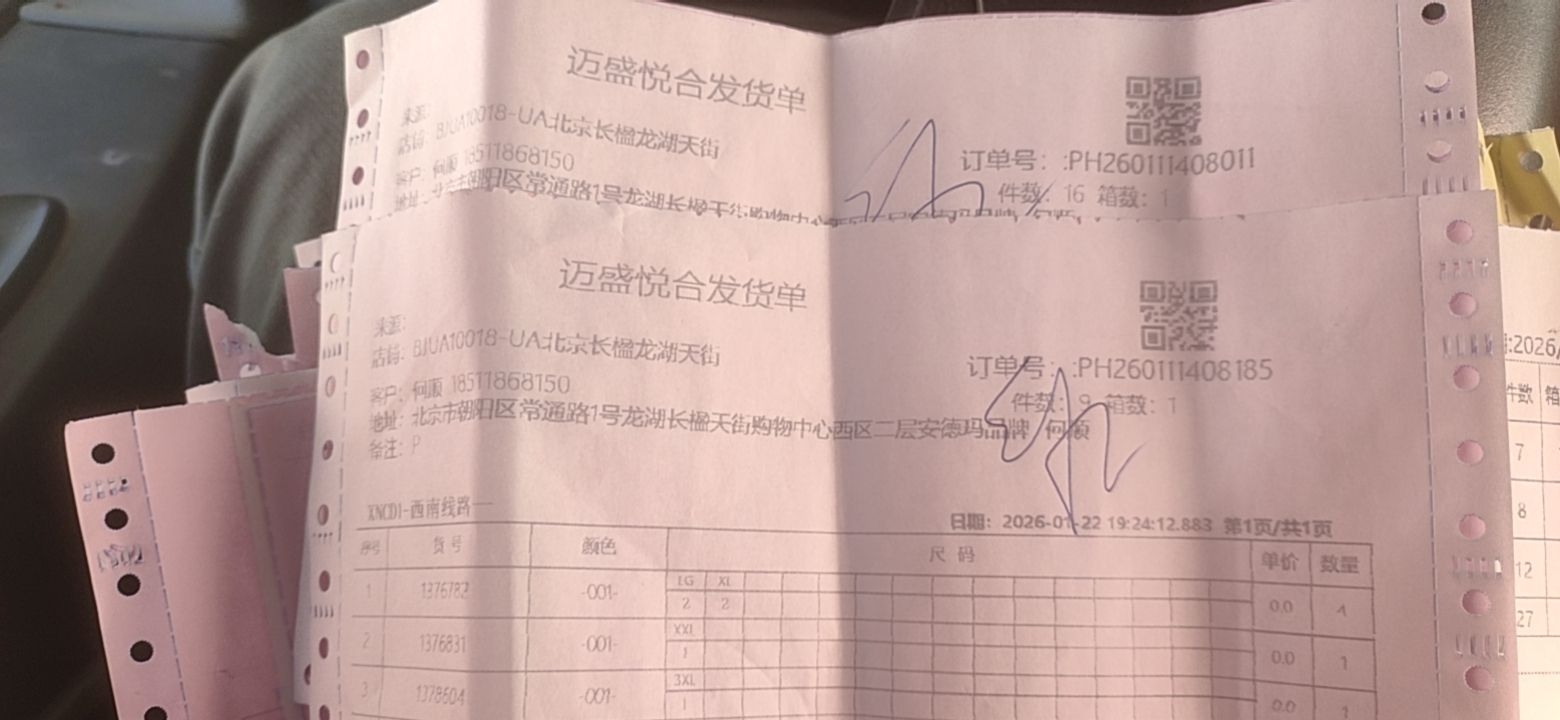 迈盛悦合发货单
来源:
店铺: BJUA10018-UA北京长楹龙湖天街
客户: 何顺 18511868150
地址: 北京市朝阳区常通路1号龙湖长楹天街购物中心
订单号: :PH260111408011
件数: 16 箱数: 1
迈盛悦合发货单
来源:
店铺: BJUA10018-UA北京长楹龙湖天街
客户: 何顺 18511868150
地址: 北京市朝阳区常通路1号龙湖长楹天街购物中心西区二层安德玛品牌 何顺
备注: P
订单号: :PH260111408185
件数: 9 箱数: 1
XNCD1-西南线路一
日期: 2026-01-22 19:24:12.883 第1页/共1页
序号 货号 颜色 尺码 单价 数量
LG XL
1 1376782 -001- 2 2 0.0 4
XXL
2 1376831 -001- 1 0.0 1
3XL
3 1378604 -001- 1 0.0 1
:2026/
件数 箱
7
8
12
27